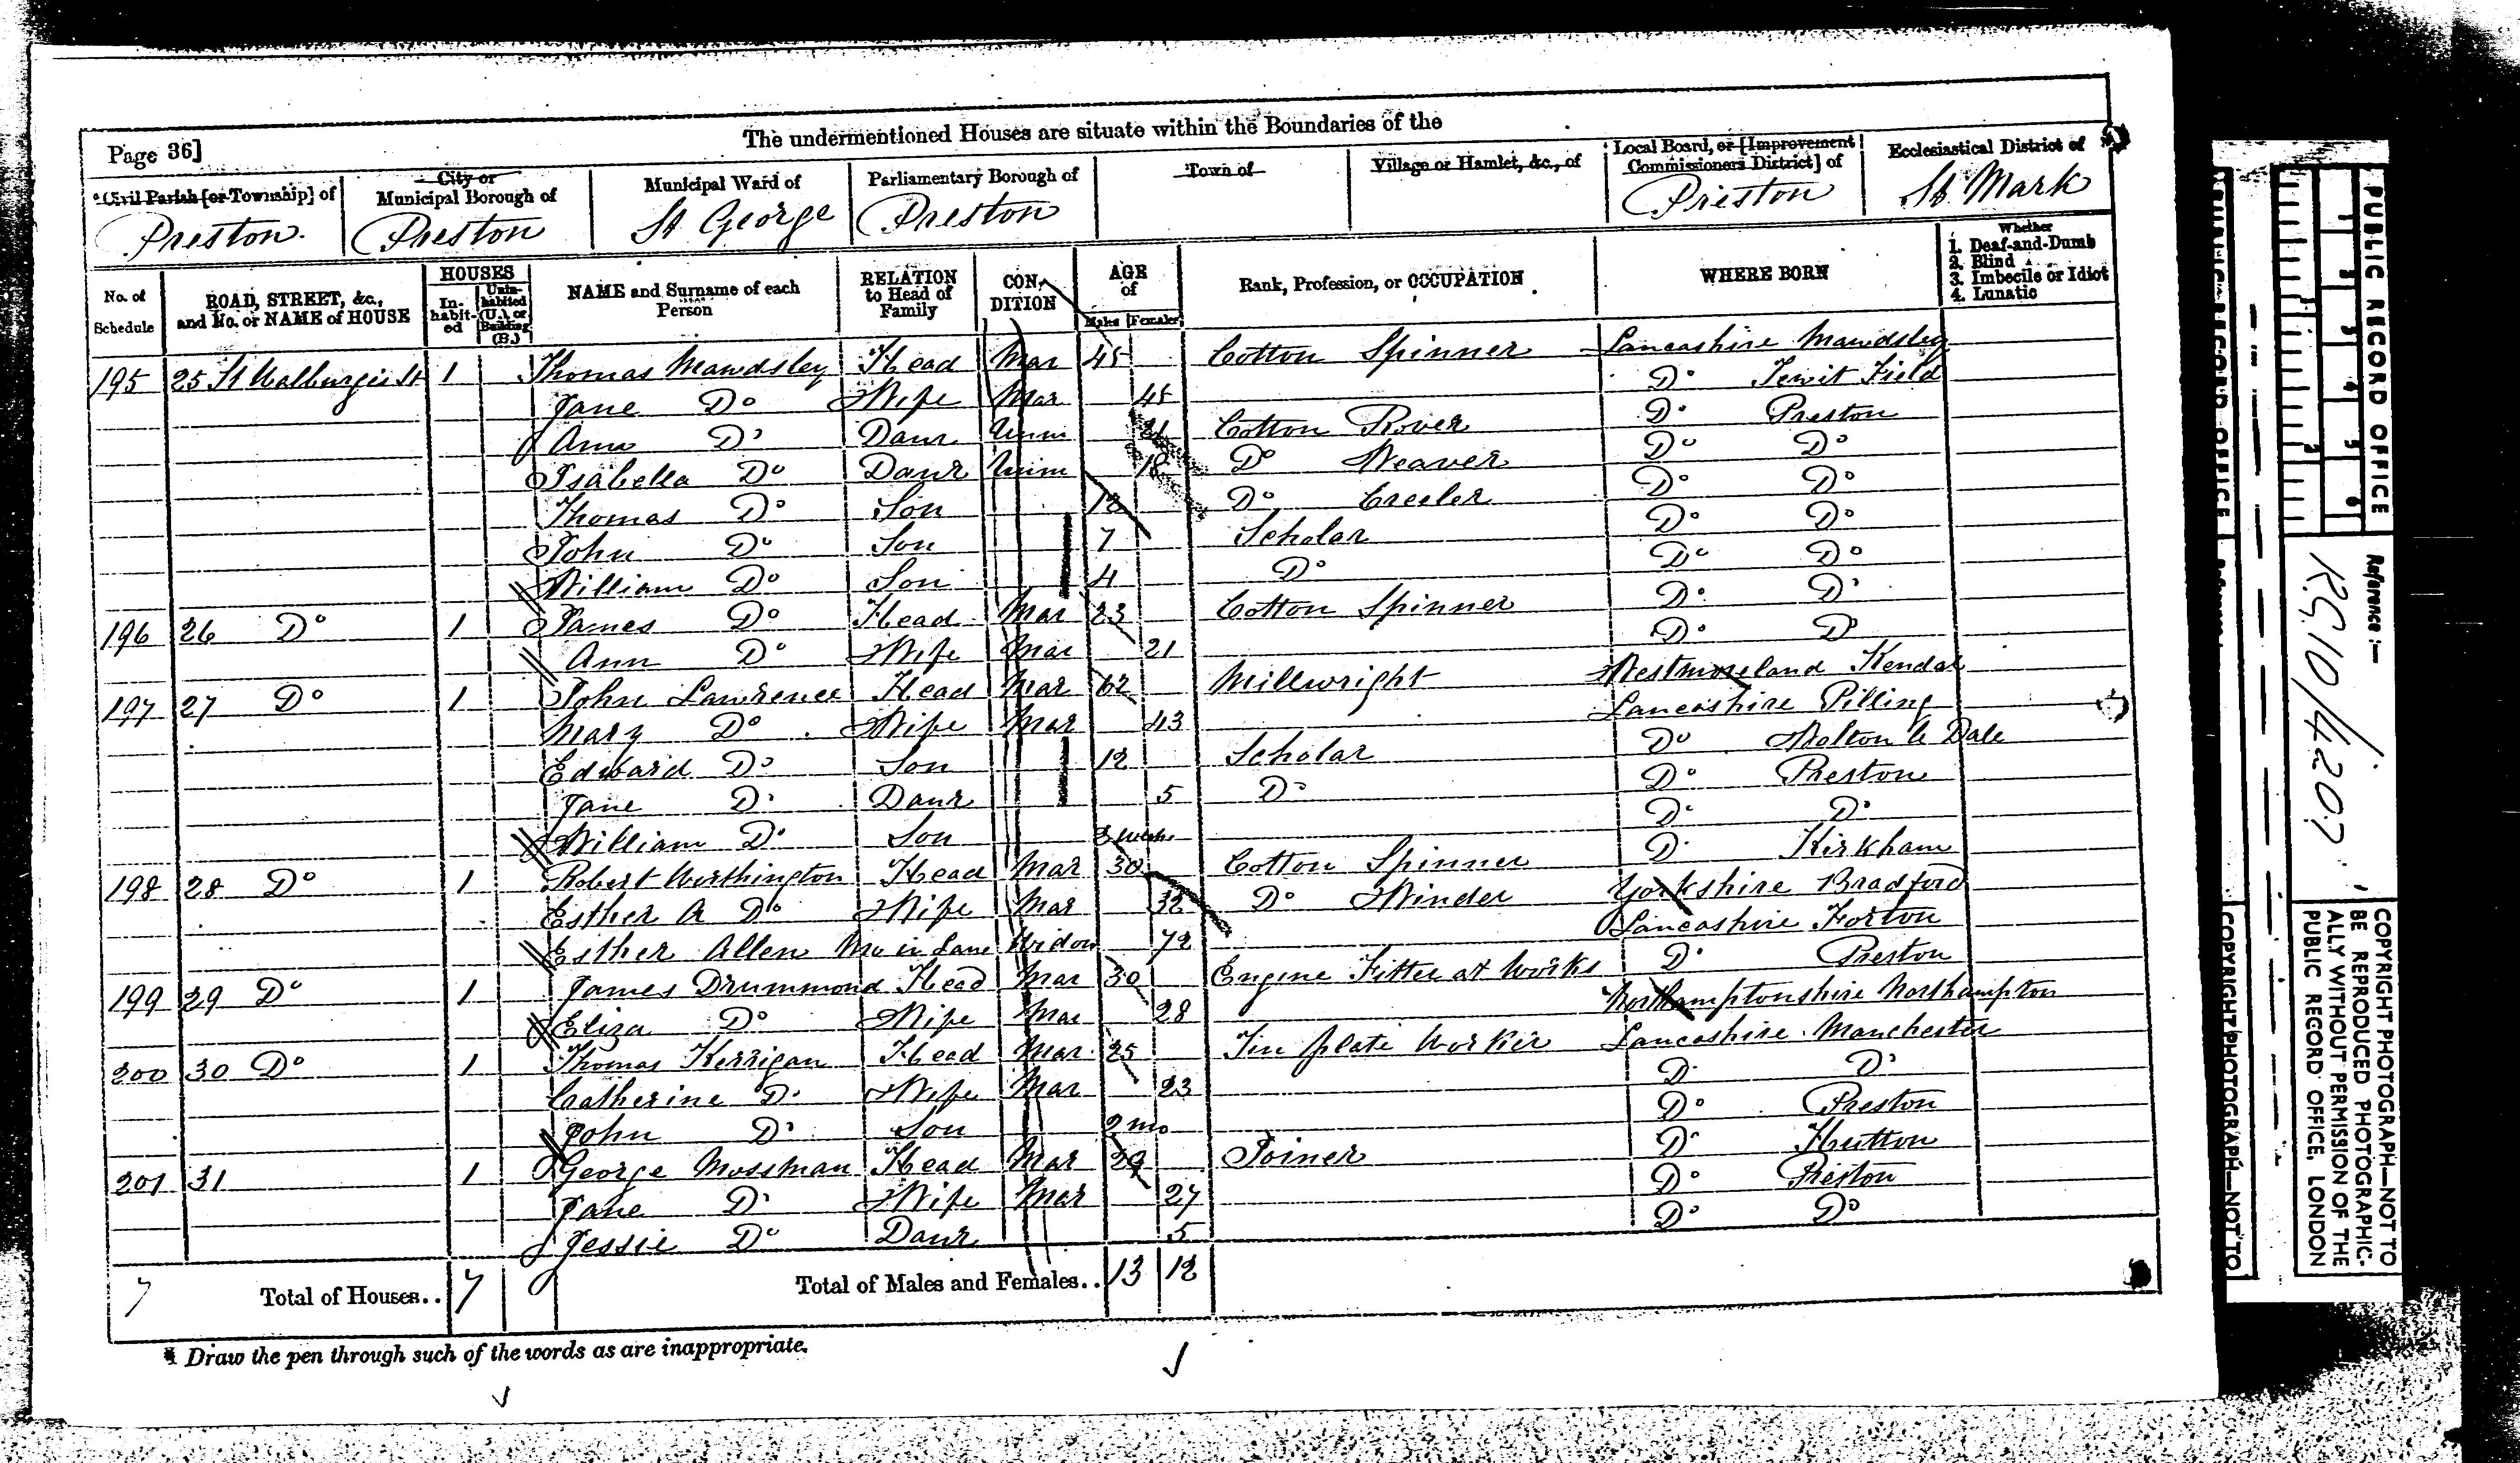 The undermentioned Houses are situate within the Boundaries of the
Page 36]
Civil Parish [or Township] of
City or Municipal Borough of
Municipal Ward of
Parliamentary Borough of
Town of
Village or Hamlet, &c., of
Local Board, or [Improvement Commissioners District] of
Ecclesiastical District of
Preston.
Preston
St George
Preston
Preston
St Mark
No. of Schedule
ROAD, STREET, &c., and No. or NAME of HOUSE
HOUSES
In-habit-ed
Unin-habited (U.), or Building (B.)
NAME and Surname of each Person
RELATION to Head of Family
CON-DITION
AGE of
Males
Females
Rank, Profession, or OCCUPATION
WHERE BORN
Whether
1. Deaf-and-Dumb
2. Blind
3. Imbecile or Idiot
4. Lunatic
195 25 St Walburges St 1 Thomas Mawdsley Head Mar 45 Cotton Spinner Lancashire Mawdsley
Jane Do Wife Mar 45 Do Tewit Field
Ann Do Daur Unm 21 Cotton Rover Do Preston
Isabella Do Daur Unm 18 Do Weaver Do Do
Thomas Do Son 12 Do Creeler Do Do
John Do Son 7 Scholar Do Do
William Do Son 4 Do Do Do
196 26 Do 1 James Do Head Mar 23 Cotton Spinner Do Do
Ann Do Wife Mar 21 Do Do
197 27 Do 1 John Lawrence Head Mar 62 Millwright Westmoreland Kendal
Mary Do Wife Mar 43 Lancashire Pilling
Edward Do Son 12 Scholar Do Walton le Dale
Jane Do Daur 5 Do Do Preston
William Do Son 3 weeks Do Do
198 28 Do 1 Robert Worthington Head Mar 30 Cotton Spinner Do Kirkham
Esther A Do Wife Mar 32 Do Winder Yorkshire Bradford
Esther Allen Mo in Law Widow 72 Lancashire Forton
199 29 Do 1 James Drummond Head Mar 30 Engine Fitter at Works Do Preston
Eliza Do Wife Mar 28 Northamptonshire Northampton
200 30 Do 1 Thomas Kerrigan Head Mar 25 Tin plate Worker Lancashire Manchester
Catherine Do Wife Mar 23 Do Do
John Do Son 2 mo Do Preston
201 31 1 George Mossman Head Mar 29 Joiner Do Hutton
Jane Do Wife Mar 27 Do Preston
Jessie Do Daur 5 Do Do
7 Total of Houses.. 7 Total of Males and Females.. 13 12
* Draw the pen through such of the words as are inappropriate.
PUBLIC RECORD OFFICE
Reference:-
RG10/4207
COPYRIGHT PHOTOGRAPH—NOT TO
BE REPRODUCED PHOTOGRAPHIC-
ALLY WITHOUT PERMISSION OF THE
PUBLIC RECORD OFFICE, LONDON
COPYRIGHT PHOTOGRAPH—NOT TO